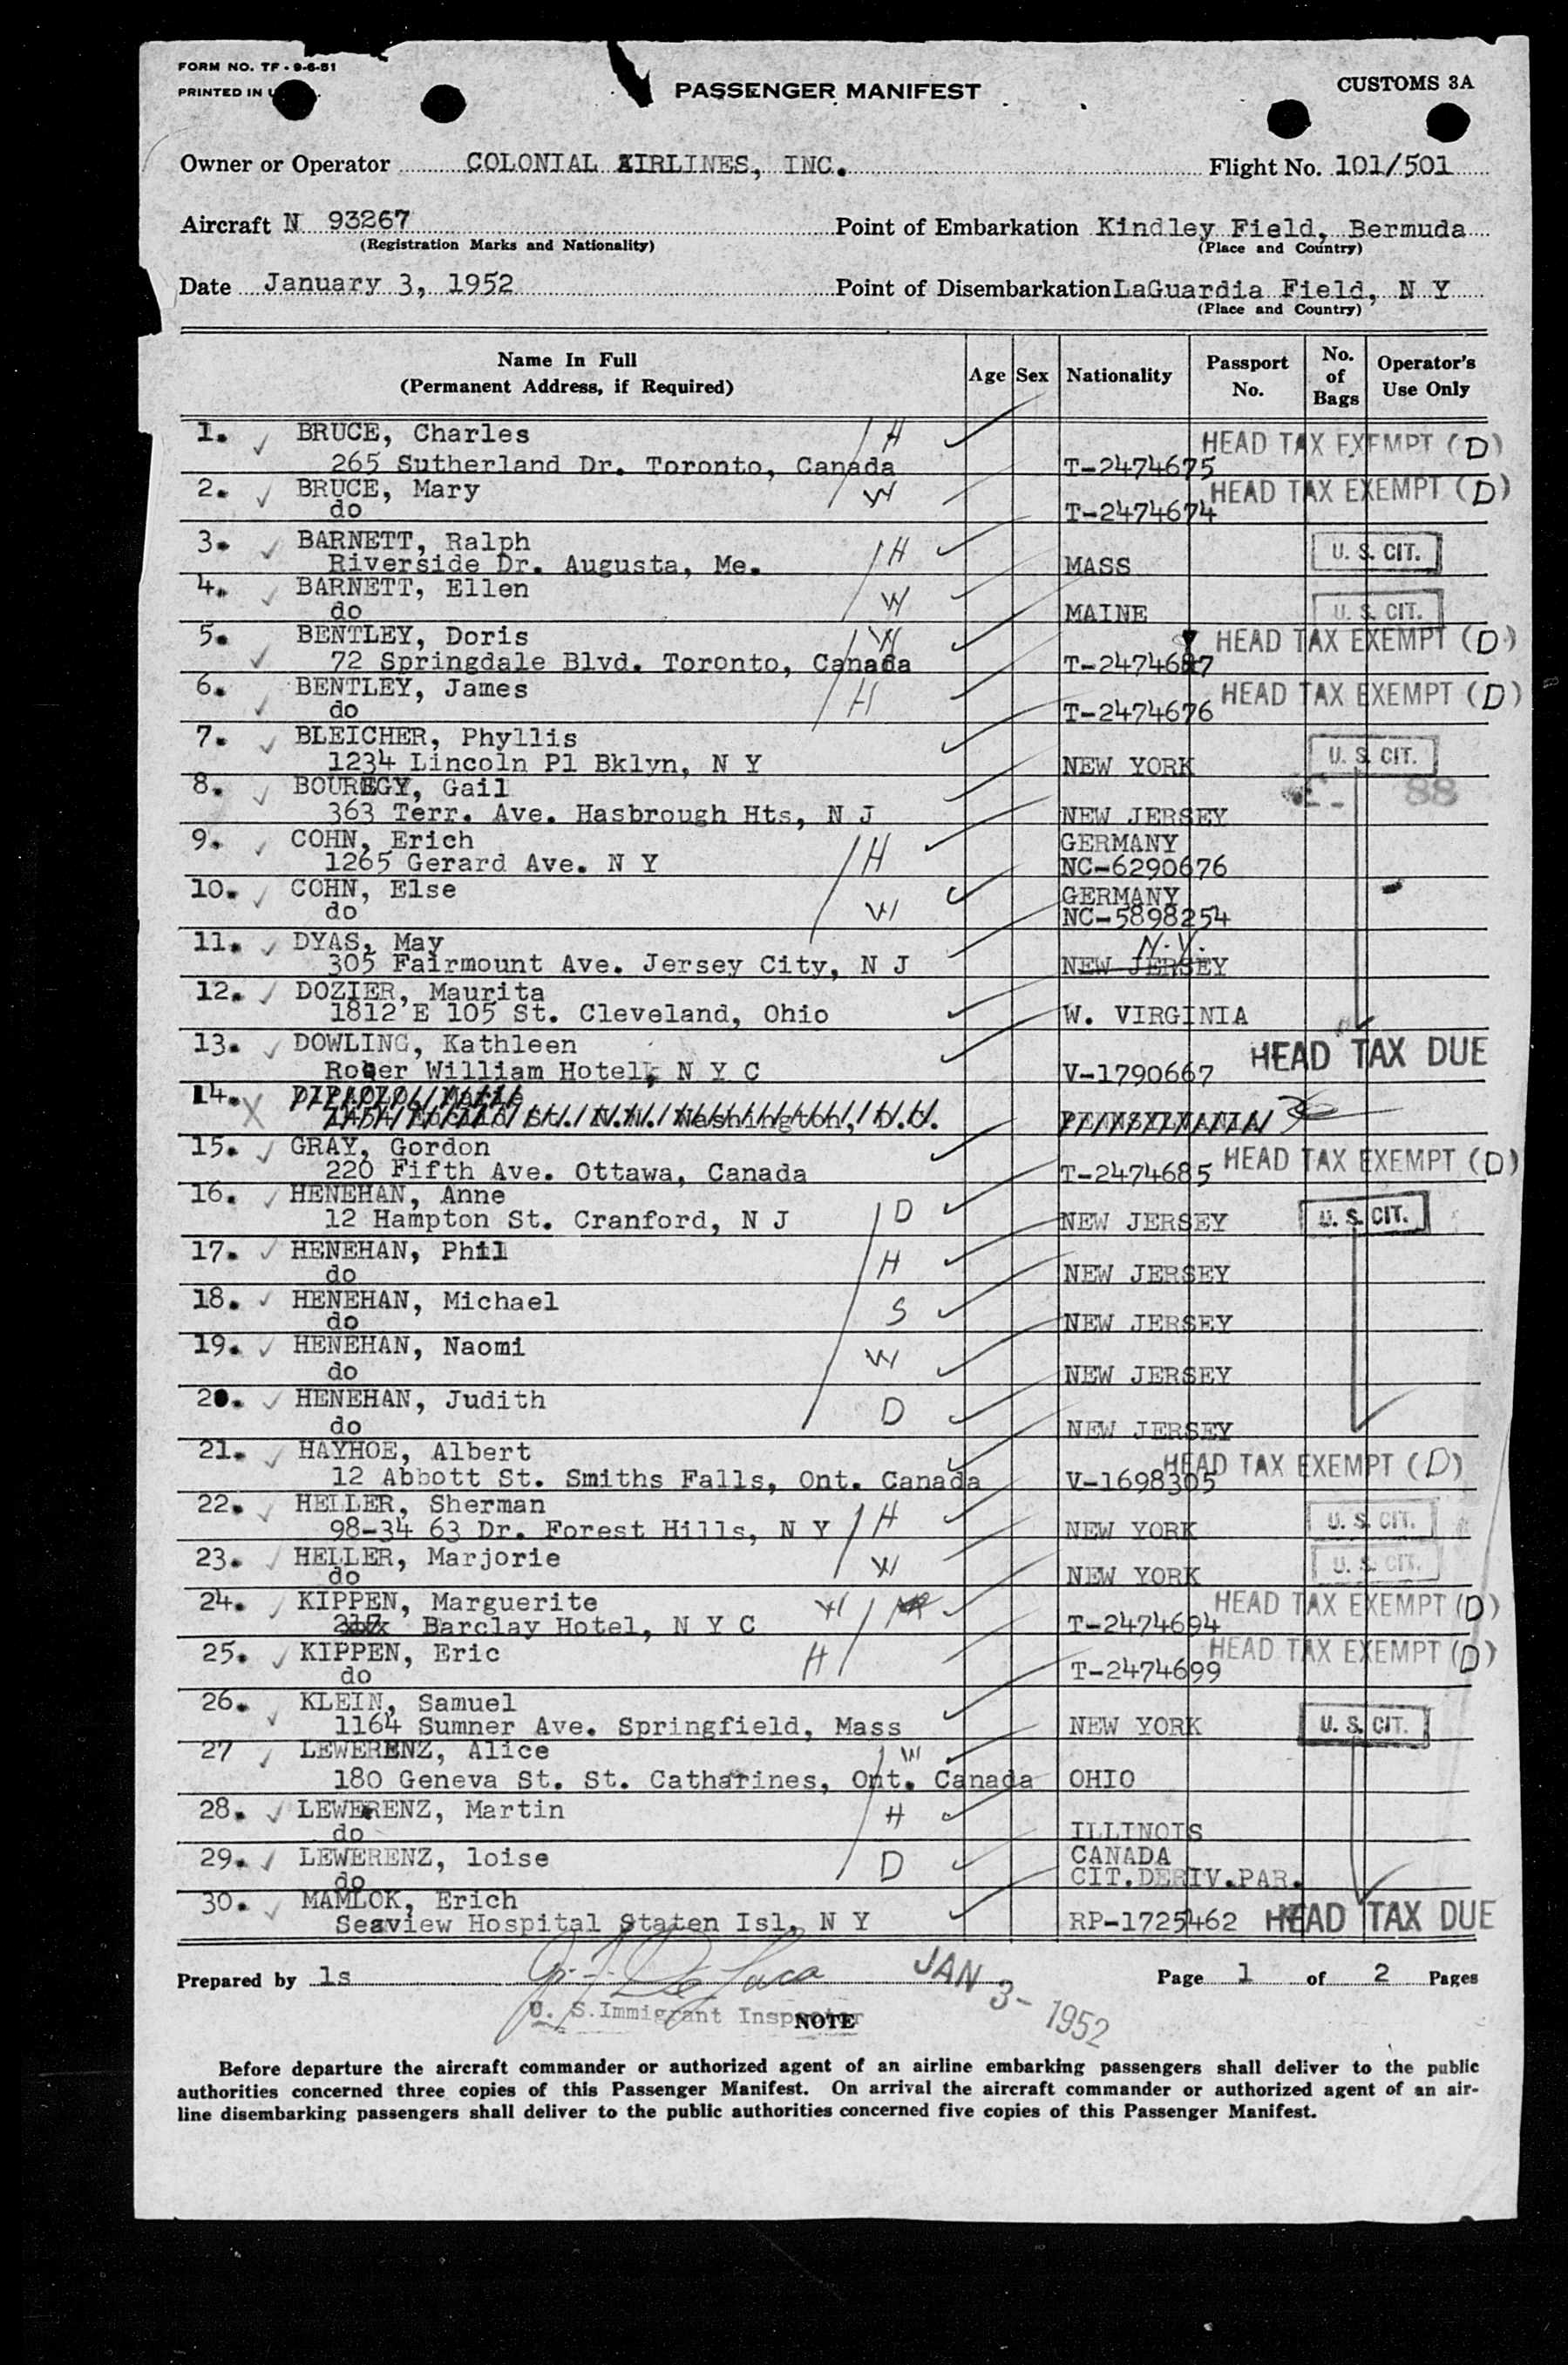 FORM NO. TF - 9-6-51
PRINTED IN
PASSENGER MANIFEST
CUSTOMS 3A
Owner or Operator COLONIAL AIRLINES, INC. Flight No. 101/501
Aircraft N 93267 Point of Embarkation Kindley Field, Bermuda
(Registration Marks and Nationality) (Place and Country)
Date January 3, 1952 Point of Disembarkation LaGuardia Field, N Y
(Place and Country)
Name In Full (Permanent Address, if Required) Age Sex Nationality Passport No. No. of Bags Operator's Use Only
1. BRUCE, Charles H HEAD TAX EXEMPT (D)
265 Sutherland Dr. Toronto, Canada T-2474675
2. BRUCE, Mary W HEAD TAX EXEMPT (D)
do T-2474674
3. BARNETT, Ralph H U. S. CIT.
Riverside Dr. Augusta, Me. MASS
4. BARNETT, Ellen W U. S. CIT.
do MAINE
5. BENTLEY, Doris W HEAD TAX EXEMPT (D)
72 Springdale Blvd. Toronto, Canada
6. BENTLEY, James H HEAD TAX EXEMPT (D)
do T-2474676
7. BLEICHER, Phyllis U. S. CIT.
1234 Lincoln Pl Bklyn, N Y NEW YORK
8. BOUREGY, Gail 88
363 Terr. Ave. Hasbrough Hts, N J NEW JERSEY
9. COHN, Erich H GERMANY
1265 Gerard Ave. N Y NC-6290676
10. COHN, Else W GERMANY
do NC-5898254
11. DYAS, May N.Y.
305 Fairmount Ave. Jersey City, N J NEW JERSEY
12. DOZIER, Maurita
1812 E 105 St. Cleveland, Ohio W. VIRGINIA
13. DOWLING, Kathleen HEAD TAX DUE
Roger William Hotel, N Y C V-1790667
14. X
N.W. Washington, D.C. PENNSYLVANIA
15. GRAY, Gordon HEAD TAX EXEMPT (D)
220 Fifth Ave. Ottawa, Canada T-2474685
16. HENEHAN, Anne D U. S. CIT.
12 Hampton St. Cranford, N J NEW JERSEY
17. HENEHAN, Phil H
do NEW JERSEY
18. HENEHAN, Michael S
do NEW JERSEY
19. HENEHAN, Naomi W
do NEW JERSEY
20. HENEHAN, Judith D
do NEW JERSEY
21. HAYHOE, Albert HEAD TAX EXEMPT (D)
12 Abbott St. Smiths Falls, Ont. Canada V-1698305
22. HELLER, Sherman H U. S. CIT.
98-34 63 Dr. Forest Hills, N Y NEW YORK
23. HELLER, Marjorie W U. S. CIT.
do NEW YORK
24. KIPPEN, Marguerite W HEAD TAX EXEMPT (D)
Barclay Hotel, N Y C T-2474694
25. KIPPEN, Eric H HEAD TAX EXEMPT (D)
do T-2474699
26. KLEIN, Samuel U. S. CIT.
1164 Sumner Ave. Springfield, Mass NEW YORK
27 LEWERENZ, Alice W
180 Geneva St. St. Catharines, Ont. Canada OHIO
28. LEWERENZ, Martin H
do ILLINOIS
29. LEWERENZ, loise D CANADA
do CIT.DERIV.PAR.
30. MAMLOK, Erich
Seaview Hospital Staten Isl, N Y RP-1725462 HEAD TAX DUE
Prepared by ls JAN 3- 1952 Page 1 of 2 Pages
U. S. Immigrant Inspector
NOTE
Before departure the aircraft commander or authorized agent of an airline embarking passengers shall deliver to the public
authorities concerned three copies of this Passenger Manifest. On arrival the aircraft commander or authorized agent of an air-
line disembarking passengers shall deliver to the public authorities concerned five copies of this Passenger Manifest.